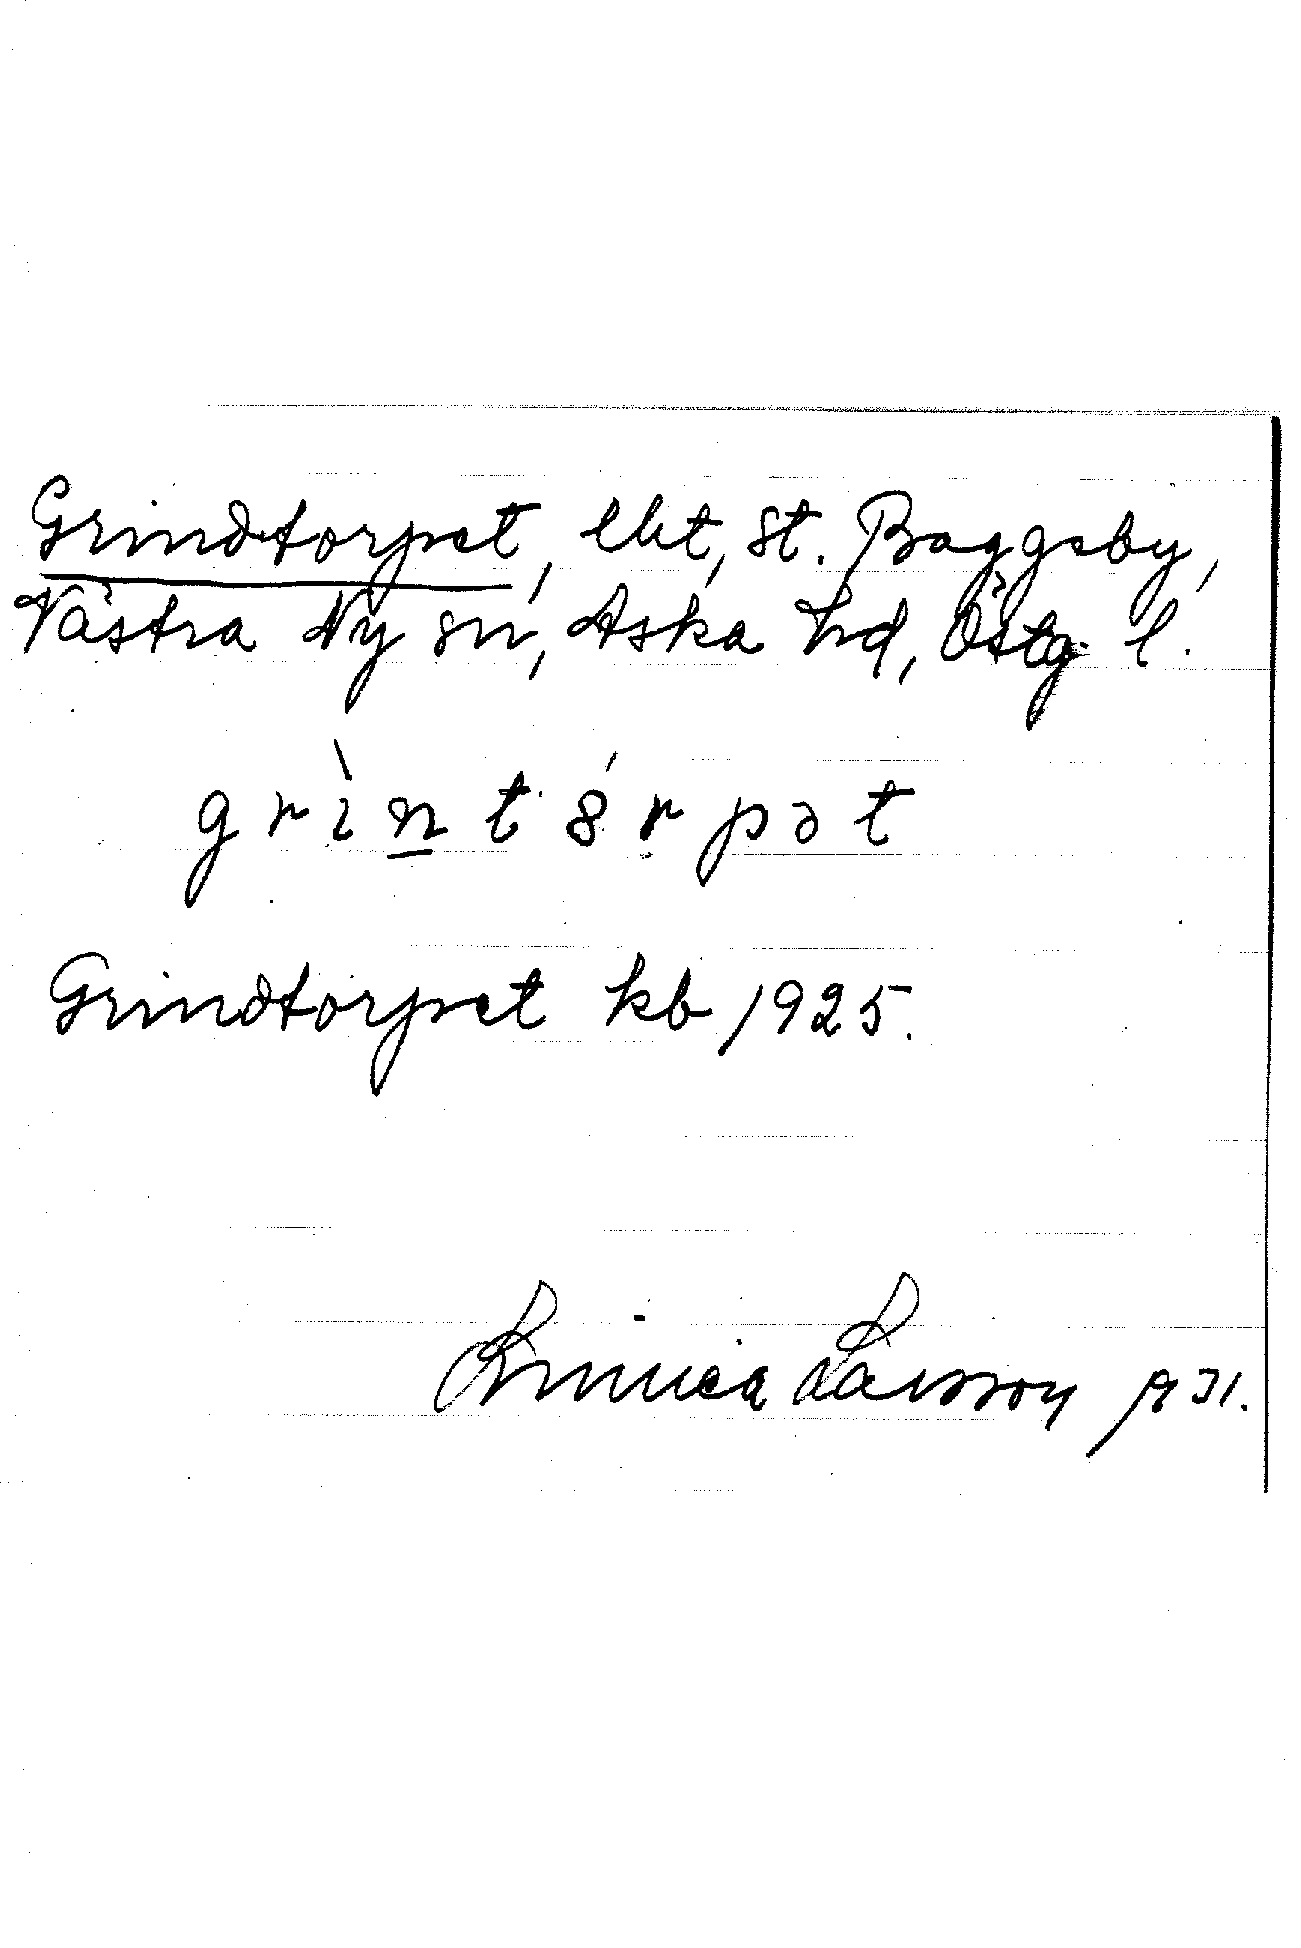 Grindtorpet, lht, St. Baggeby,
Västra Ny sn, Aska hd, Östg. l.
grìn̲tórpət
Grindtorpet kb 1925.
Linnea Larsson 1931.